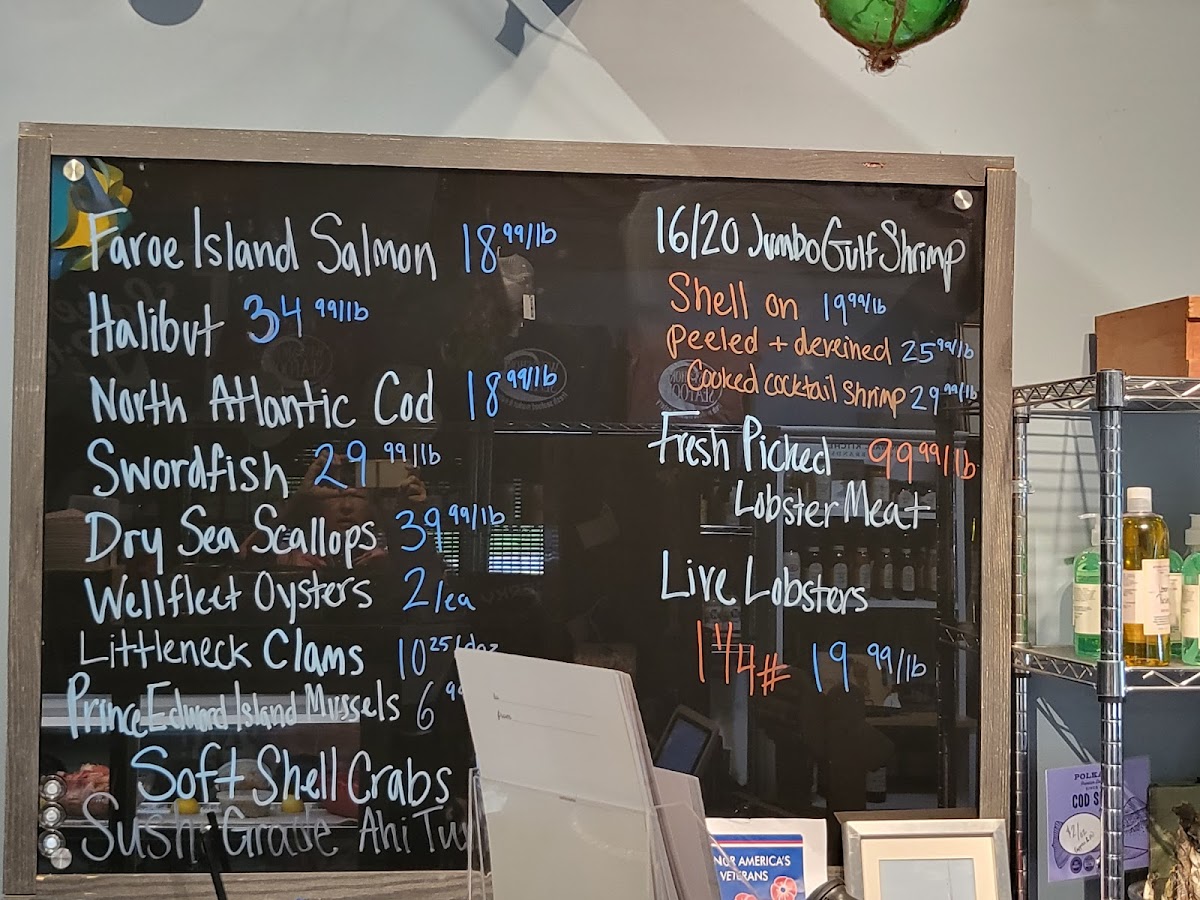 Faroe Island Salmon 18 99/lb
Halibut 34 99/lb
North Atlantic Cod 18 99/lb
Swordfish 29 99/lb
Dry Sea Scallops 39 99/lb
Wellfleet Oysters 2/ea
Littleneck Clams 10 25/doz
Prince Edward Island Mussels 6 99
Soft Shell Crabs
Sushi Grade Ahi
16/20 Jumbo Gulf Shrimp
Shell on 19 99/lb
peeled + deveined 25 99/lb
Cooked cocktail shrimp 29 99/lb
Fresh Picked 99 99/lb
Lobster Meat
Live Lobsters
1 1/4# 19 99/lb
AMERICA'S
VETERANS
COD